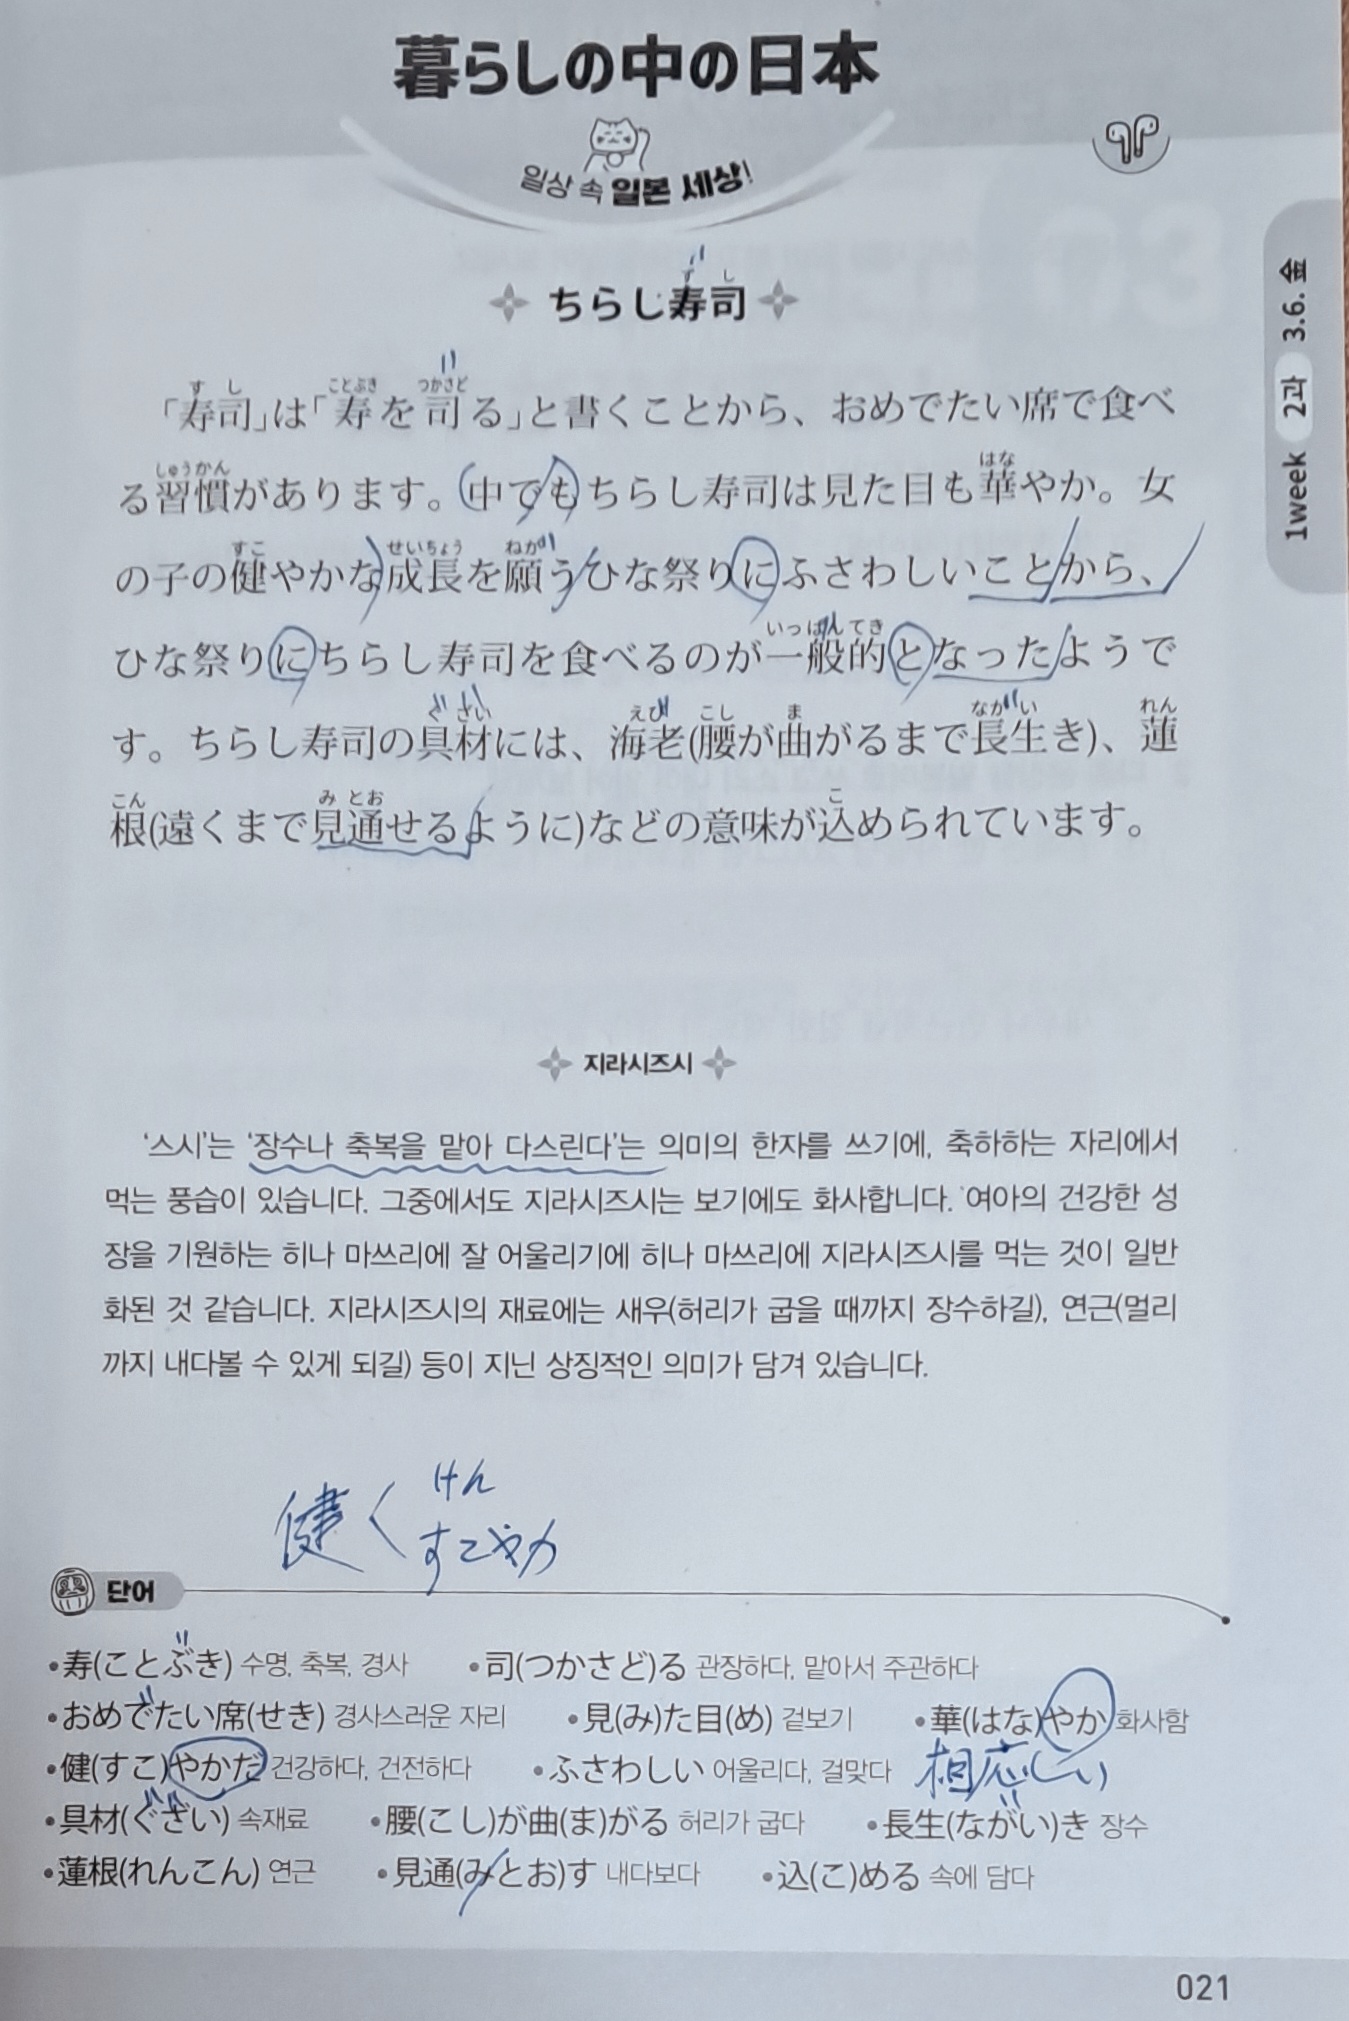 暮らしの中の日本
일상 속 일본 세상!
1week 2과 3.6. 金
ずし
ちらし寿司
すし ことぶき つかさど
「寿司」は「寿を司る」と書くことから、おめでたい席で食べ
しゅうかん はな
る習慣があります。中でもちらし寿司は見た目も華やか。女
すこ せいちょう ねが
の子の健やかな成長を願うひな祭りにふさわしいことから、
いっぱんてき
ひな祭りにちらし寿司を食べるのが一般的となったようで
ぐざい えび こし ま ながい れん
す。ちらし寿司の具材には、海老(腰が曲がるまで長生き)、蓮
こん みとお こ
根(遠くまで見通せるように)などの意味が込められています。
지라시즈시
‘스시’는 ‘장수나 축복을 맡아 다스린다’는 의미의 한자를 쓰기에, 축하하는 자리에서
먹는 풍습이 있습니다. 그중에서도 지라시즈시는 보기에도 화사합니다. 여아의 건강한 성
장을 기원하는 히나 마쓰리에 잘 어울리기에 히나 마쓰리에 지라시즈시를 먹는 것이 일반
화된 것 같습니다. 지라시즈시의 재료에는 새우(허리가 굽을 때까지 장수하길), 연근(멀리
까지 내다볼 수 있게 되길) 등이 지닌 상징적인 의미가 담겨 있습니다.
けん
健く
すこやか
단어
•寿(ことぶき) 수명, 축복, 경사 •司(つかさど)る 관장하다, 맡아서 주관하다
•おめでたい席(せき) 경사스러운 자리 •見(み)た目(め) 겉보기 •華(はな)やか 화사함
•健(すこ)やかだ 건강하다, 건전하다 •ふさわしい 어울리다, 걸맞다 相応しい
•具材(ぐざい) 속재료 •腰(こし)が曲(ま)がる 허리가 굽다 •長生(ながい)き 장수
•蓮根(れんこん) 연근 •見通(みとお)す 내다보다 •込(こ)める 속에 담다
021